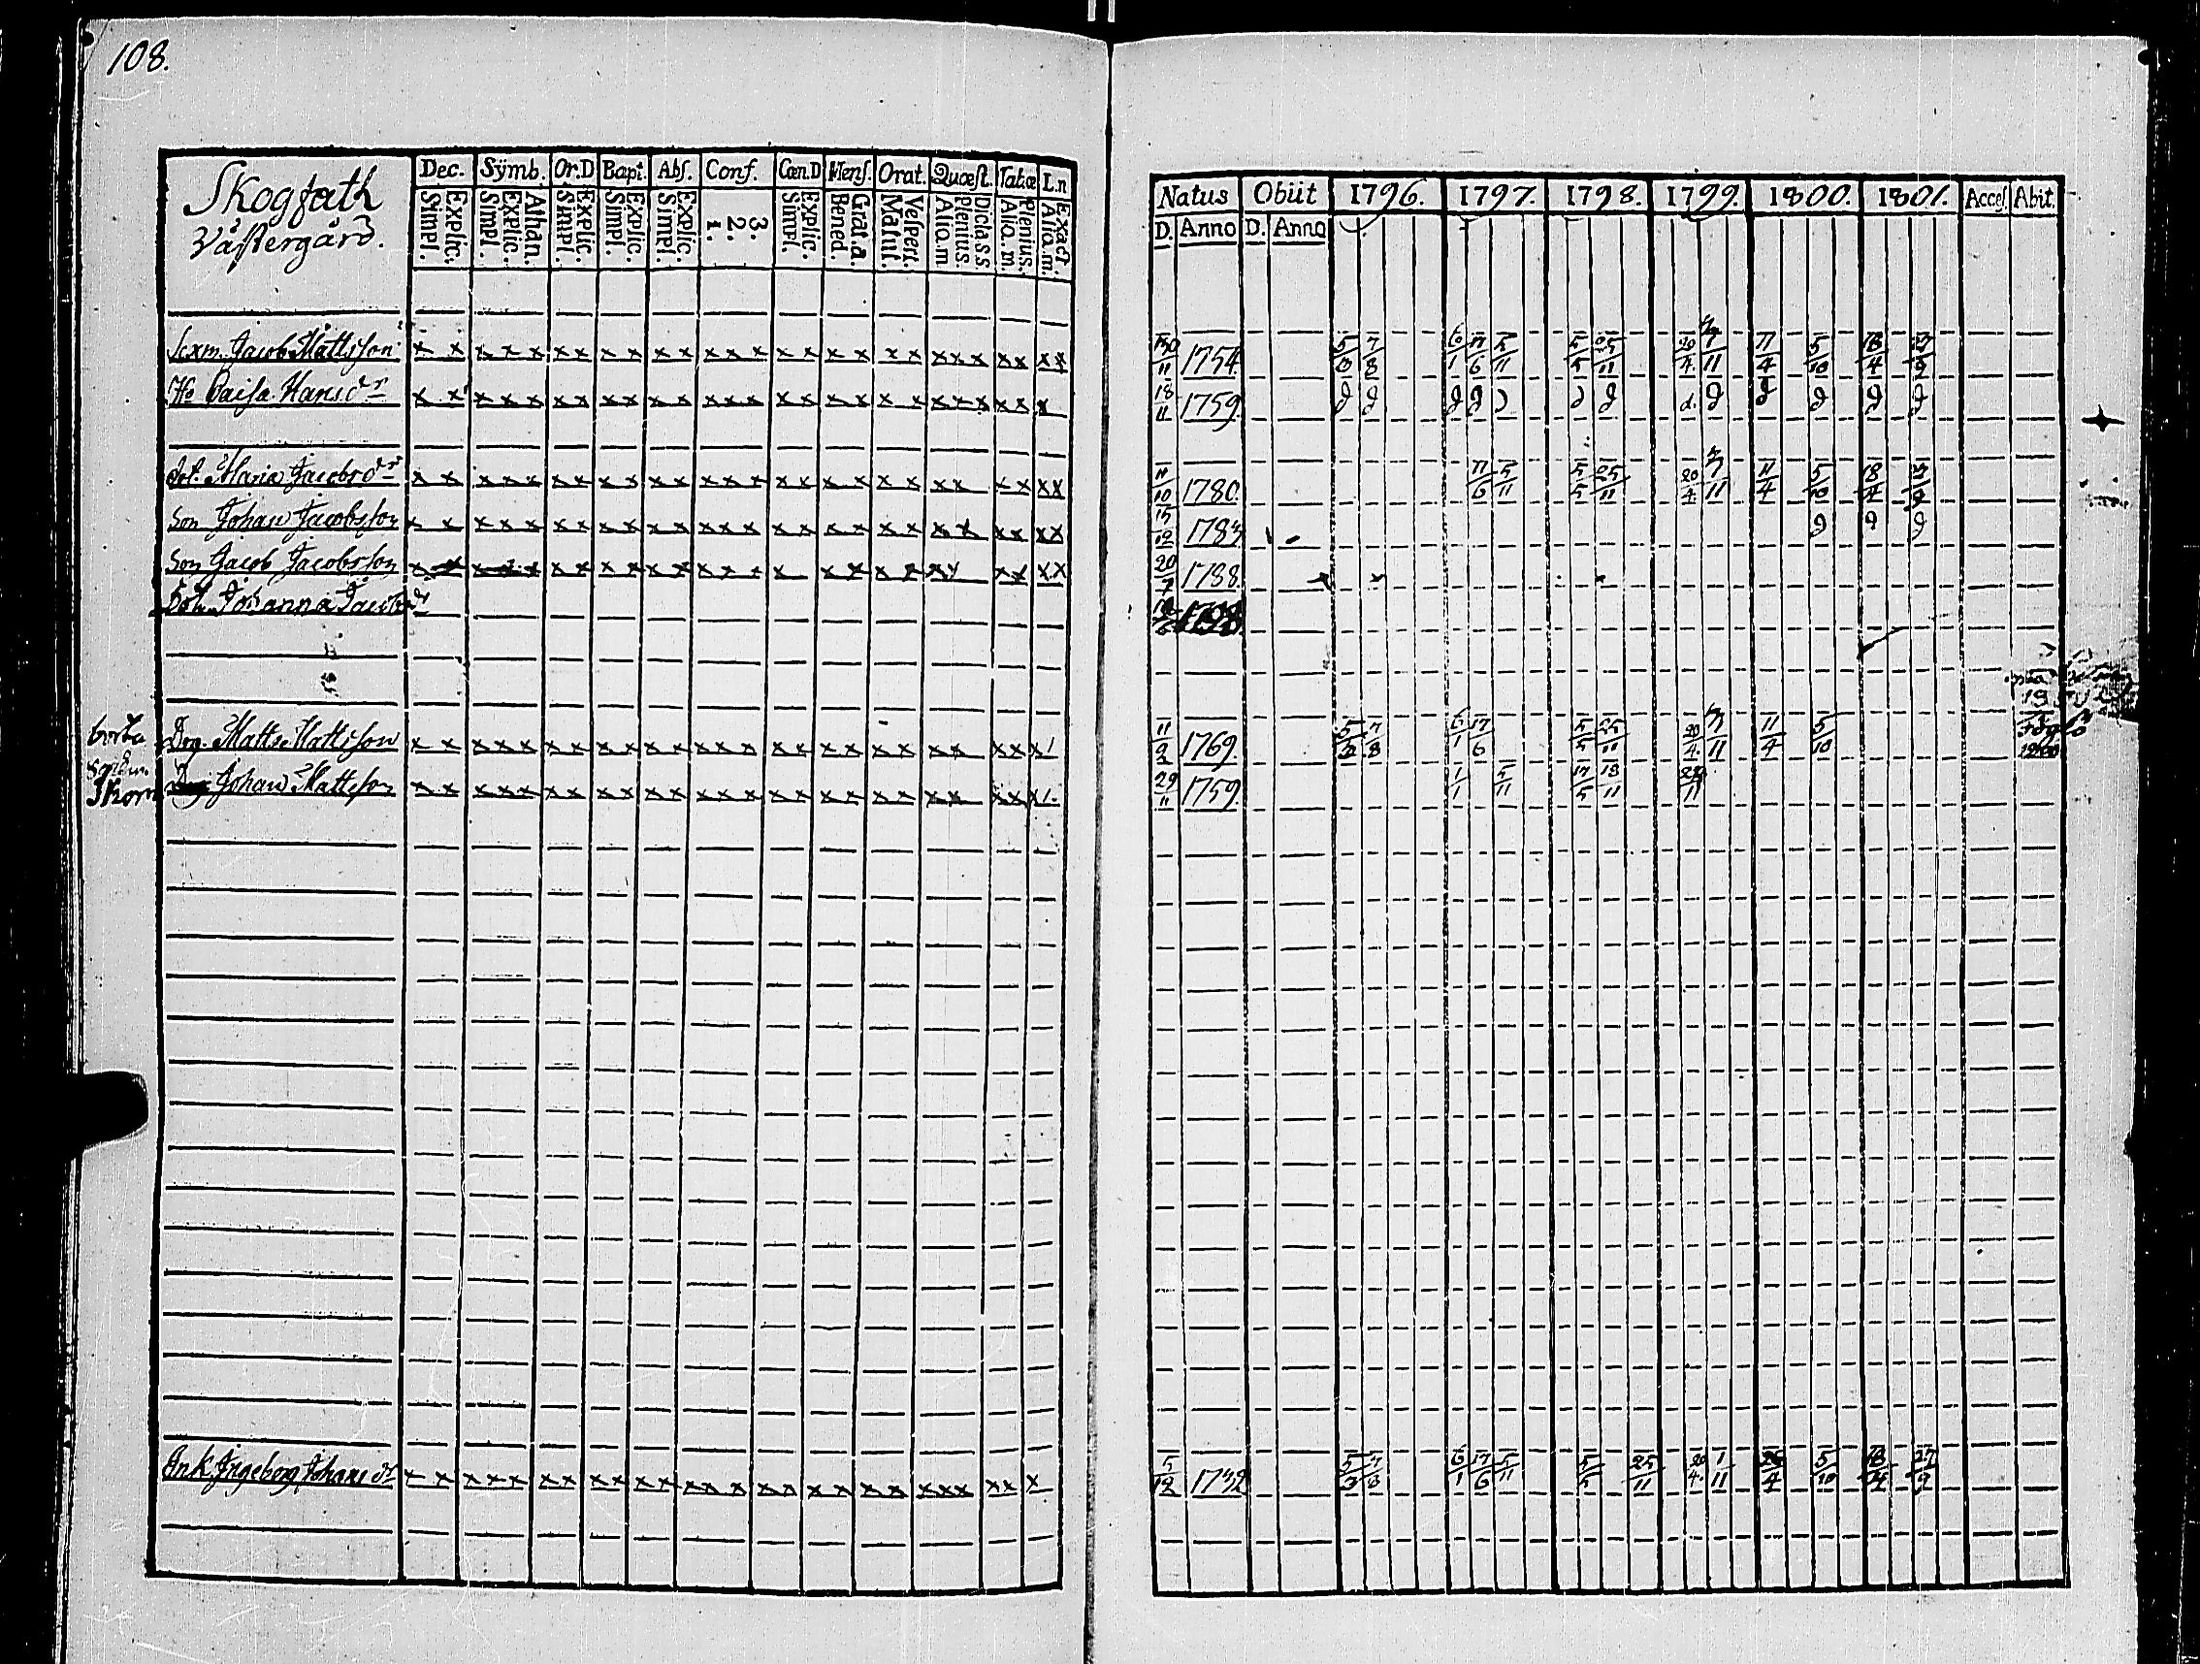 108.
Skogfath
Västergård.
Dec. Sÿmb. Or.D Bapt. Abs. Conf. Cœn.D Mens. Orat. Quæst. Tabæ L.n
Simpl. Explic. Simpl. Explic. Athan. Simpl. Explic. Simpl. Explic. Simpl. Explic. 1. 2. 3. Simpl. Explic. Bened. Grat.a. Matut. Vespert. Alio.m plenius. Dicta.s.s. Alio.m. plenius. Alio.m. Exact.
Natus Obiit 1796. 1797. 1798. 1799. 1800. 1801. Acces. Abit.
D. Anno D. Anno
Sexm. Jacob Mattsson x x x x x x x x x x x x x x x x x x x x x x x x x x x 1754. 5/3 7/8 6/1 17/6 5/11 5/5 25/11 20/4 7/11 11/4 5/10 18/4 27/9
H. Caisa Hansdr x x x x x x x x x x x x x x x x x x x x x x x x x x 18/11 1759. d d d d d d d d. d d d d d
dot. Maria Jacobsdr x x x x x x x x x x x x x x x x x x x x x x x x x x 11/10 1780. 17/6 5/11 5/5 25/11 20/4 7/11 11/4 5/10 18/4 27/9
Son Johan Jacobsson x x x x x x x x x x x x x x x x x x x x x x x x x x 15/12 1783 d d d
Son Jacob Jacobsson x x x x x x x x x x x x x x x x x x x x x x x x x 20/7 1788.
Dot. Johanna Jacobsdr 1798.
borta Drg. Matts Mattsson x x x x x x x x x x x x x x x x x x x x x x x x x x 1 11/2 1769. 5/3 7/8 6/1 17/6 5/5 25/11 20/4. 7/11 11/4 5/10
Johan Mattsson x x x x x x x x x x x x x x x x x x x x x x x x x x 1. 29/11 1759. 1/1 5/11 17/5 18/11
Enk. Ingeborg Johansdr x x x x x x x x x x x x x x x x x x x x x x x x x x 5/12 1732 5/3 7/8 6/1 17/6 5/11 5/5 25/11 20/4. 1/11 5/10 18/4 27/9